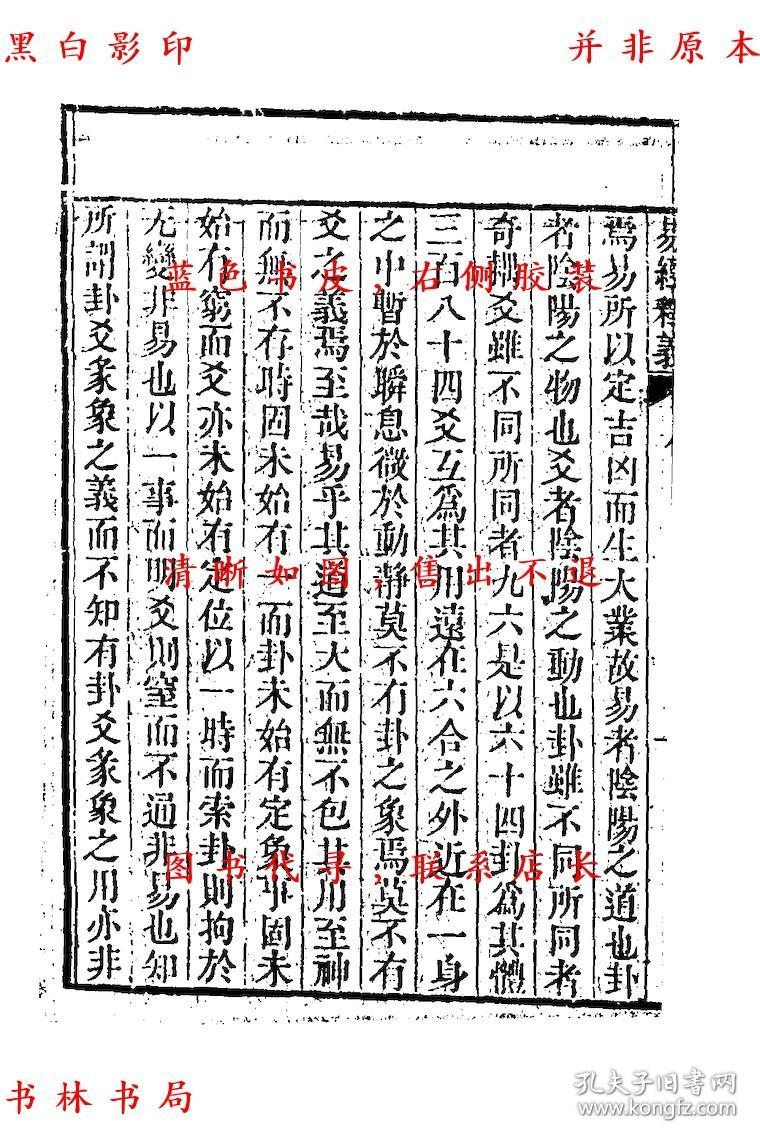 黑白影印
并非原本
易經釋義
焉易所以定吉凶而生大業故易者陰陽之道也卦
者陰陽之物也爻者陰陽之動也卦雖不同所同者
奇耦爻雖不同所同者九六是以六十四卦爲其體
三百八十四爻互爲其用遠在六合之外近在一身
之中暫於瞬息微於動靜莫不有卦之象焉莫不有
爻之義焉至哉易乎其道至大而無不包其用至神
而無不存時固未始有一而卦未始有定象事固未
始有窮而爻亦未始有定位以一時而索卦則拘於
无變非易也以一事而明爻則窒而不通非易也知
所謂卦爻彖象之義而不知有卦爻彖象之用亦非
蓝色书皮，右侧胶装
清晰如图，售出不退
图书代寻，联系店长
书林书局
孔夫子旧书网
www.kongfz.com